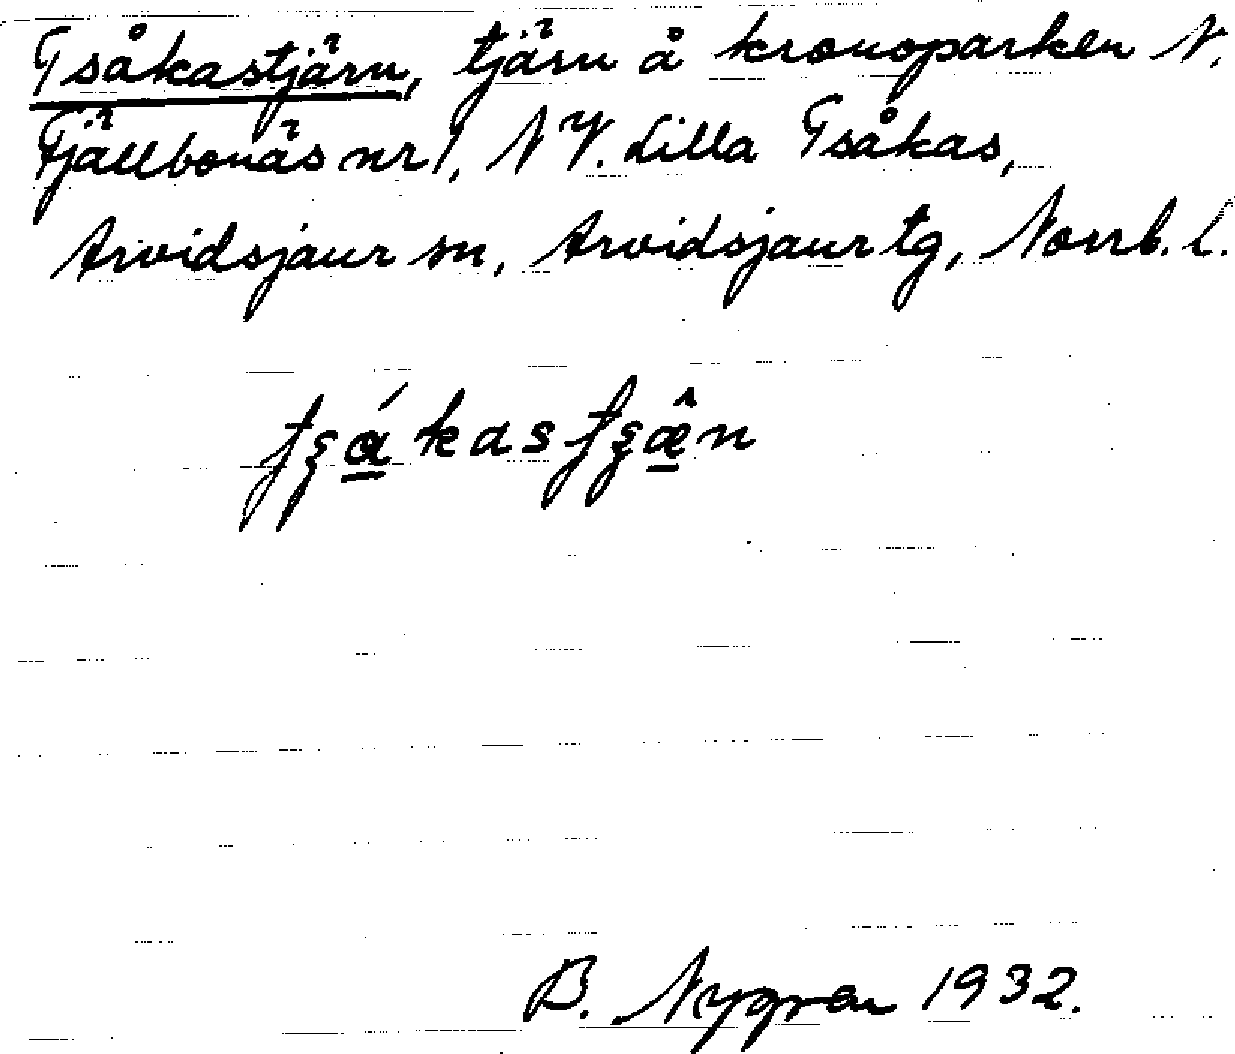 Tsåkastjärn, tjärn å kronoparken N.
Fjällbonäs nr 1, NV. Lilla Tsåkas,
Arvidsjaur sn, Arvidsjaur tg, Norrb. l.
B. Nygren 1932.